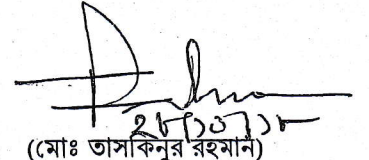 ২৮/১০/১৮
(মোঃ তাসকিনুর রহমান)